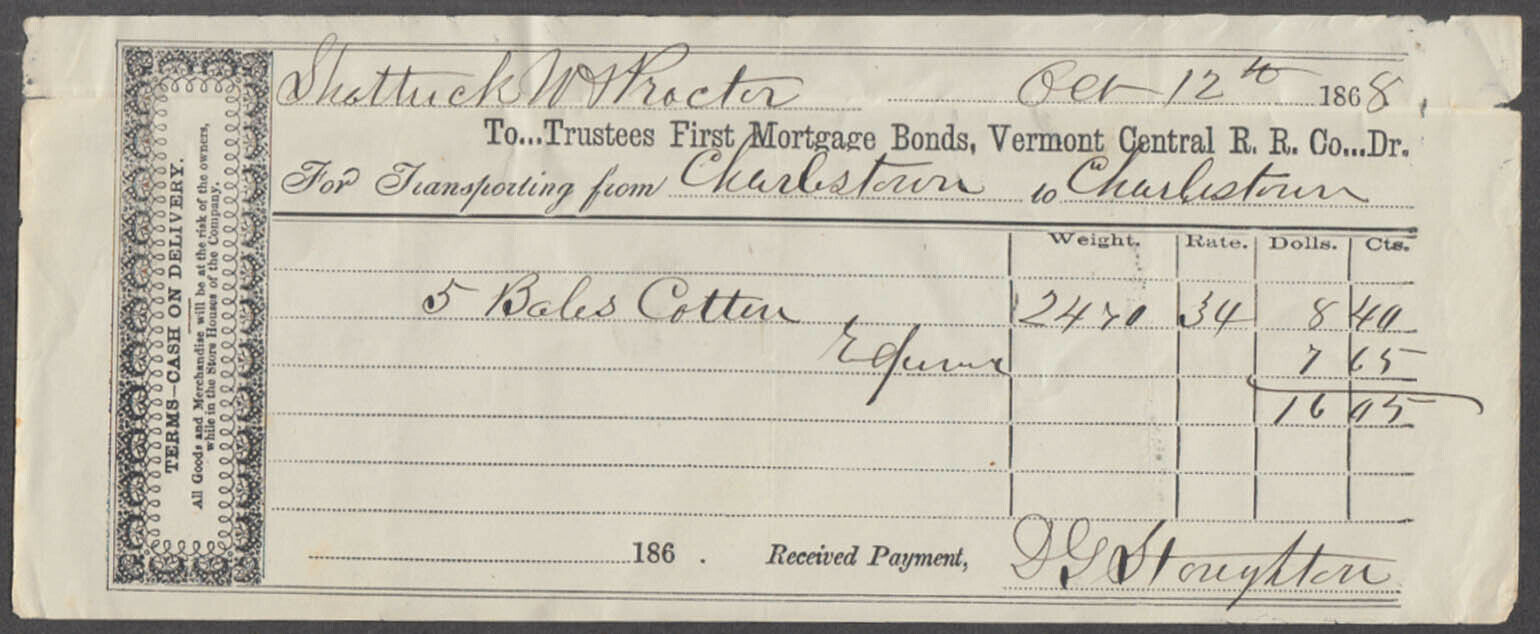 TERMS—CASH ON DELIVERY.
All Goods and Merchandise will be at the risk of the owners,
while in the Store Houses of the Company.
Shattuck W Proctor Oct 12th 1868
To...Trustees First Mortgage Bonds, Vermont Central R. R. Co...Dr.
For Transporting from Charlestown to Charlestown
Weight. Rate. Dolls. Cts.
5 Bales Cotten 2470 34 8 40
7 65
16 05
186 . Received Payment, D G Stoughton